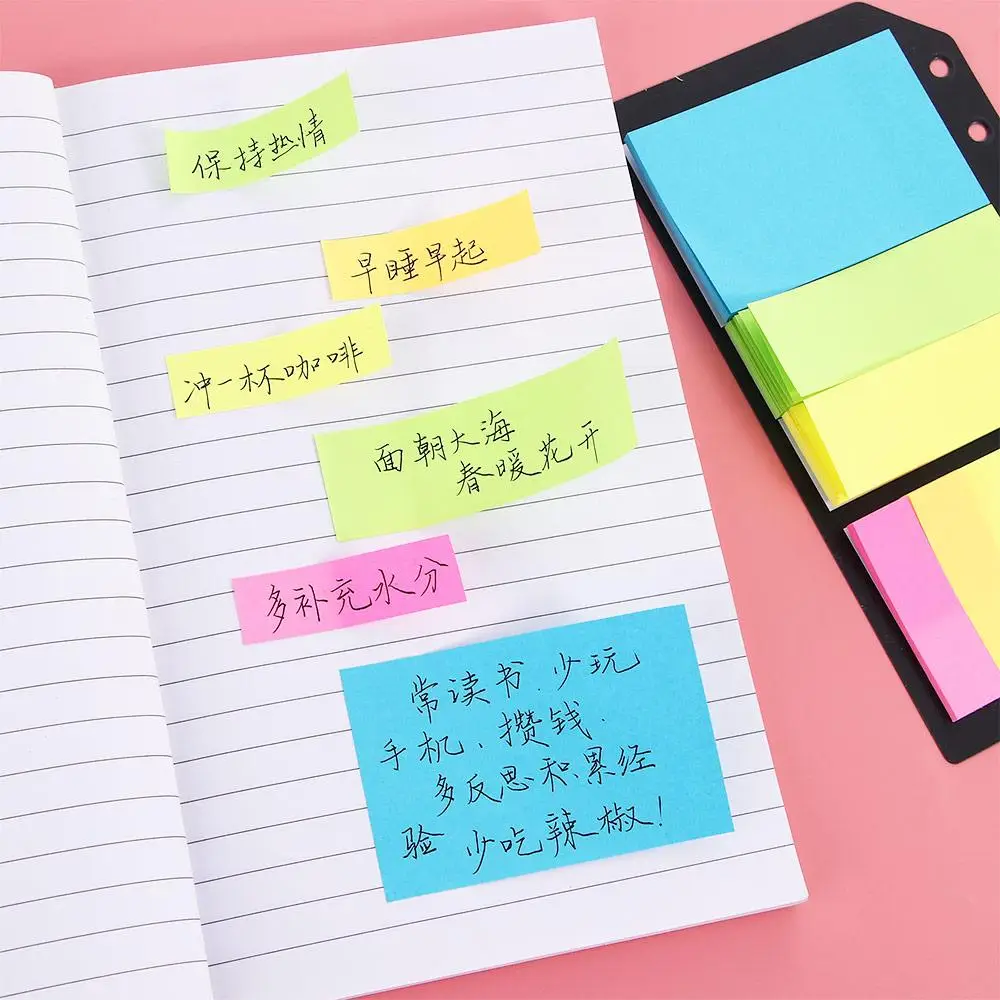 保持热情
早睡早起
冲一杯咖啡
面朝大海
春暖花开
多补充水分
常读书.少玩
手机、攒钱.
多反思积累经
验 少吃辣椒!